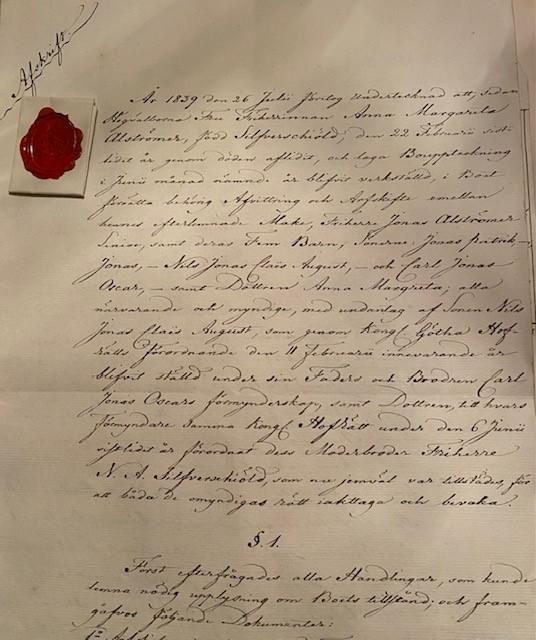 Afskrift
År 1839 den 26 Julii förtog Undertecknad att, sedan
Högvälborna Fru Friherrinnan Anna Margareta
Alströmer, född Silfverschiöld, den 22 Februarii sist-
lidet år genom döden aflidit, och laga Bouppteckning
i Junii månad nämnde år blifvit verkställd, i Boet
förrätta behörig Afvittring och Arfskifte emellan
hennes efterlemnade Make, Friherre Jonas Alströmer
Senior, samt deras Fem Barn, Sönerne: Jonas Patrik, –
Jonas, – Nils Jonas Claës August, – och Carl Jonas
Oscar, – samt Dottren Anna Margreta; alla
närvarande och myndige, med undantag af Sonen Nils
Jonas Claës August, som genom Kongl. Götha Hof-
rätts förordnande den 11 Februarii innevarande år
blifvit ställd under sin Faders och Brodren Carl
Jonas Oscars förmynderskap, samt Dottren, till hvars
Förmyndare Samma Kongl. Hofrätt under den 6 Junii
sistlidet år förordnat dess Moderbroder Friherre
N. A. Silfverschiöld, som nu jemväl var tillstädes, för
att båda de omyndigas rätt iakttaga och bevaka.
§. 1.
Först efterfrågades alla Handlingar, som kunde
lemna nödig upplysning om Boets tillstånd; och fram-
gåfvos följande Dokumenter: